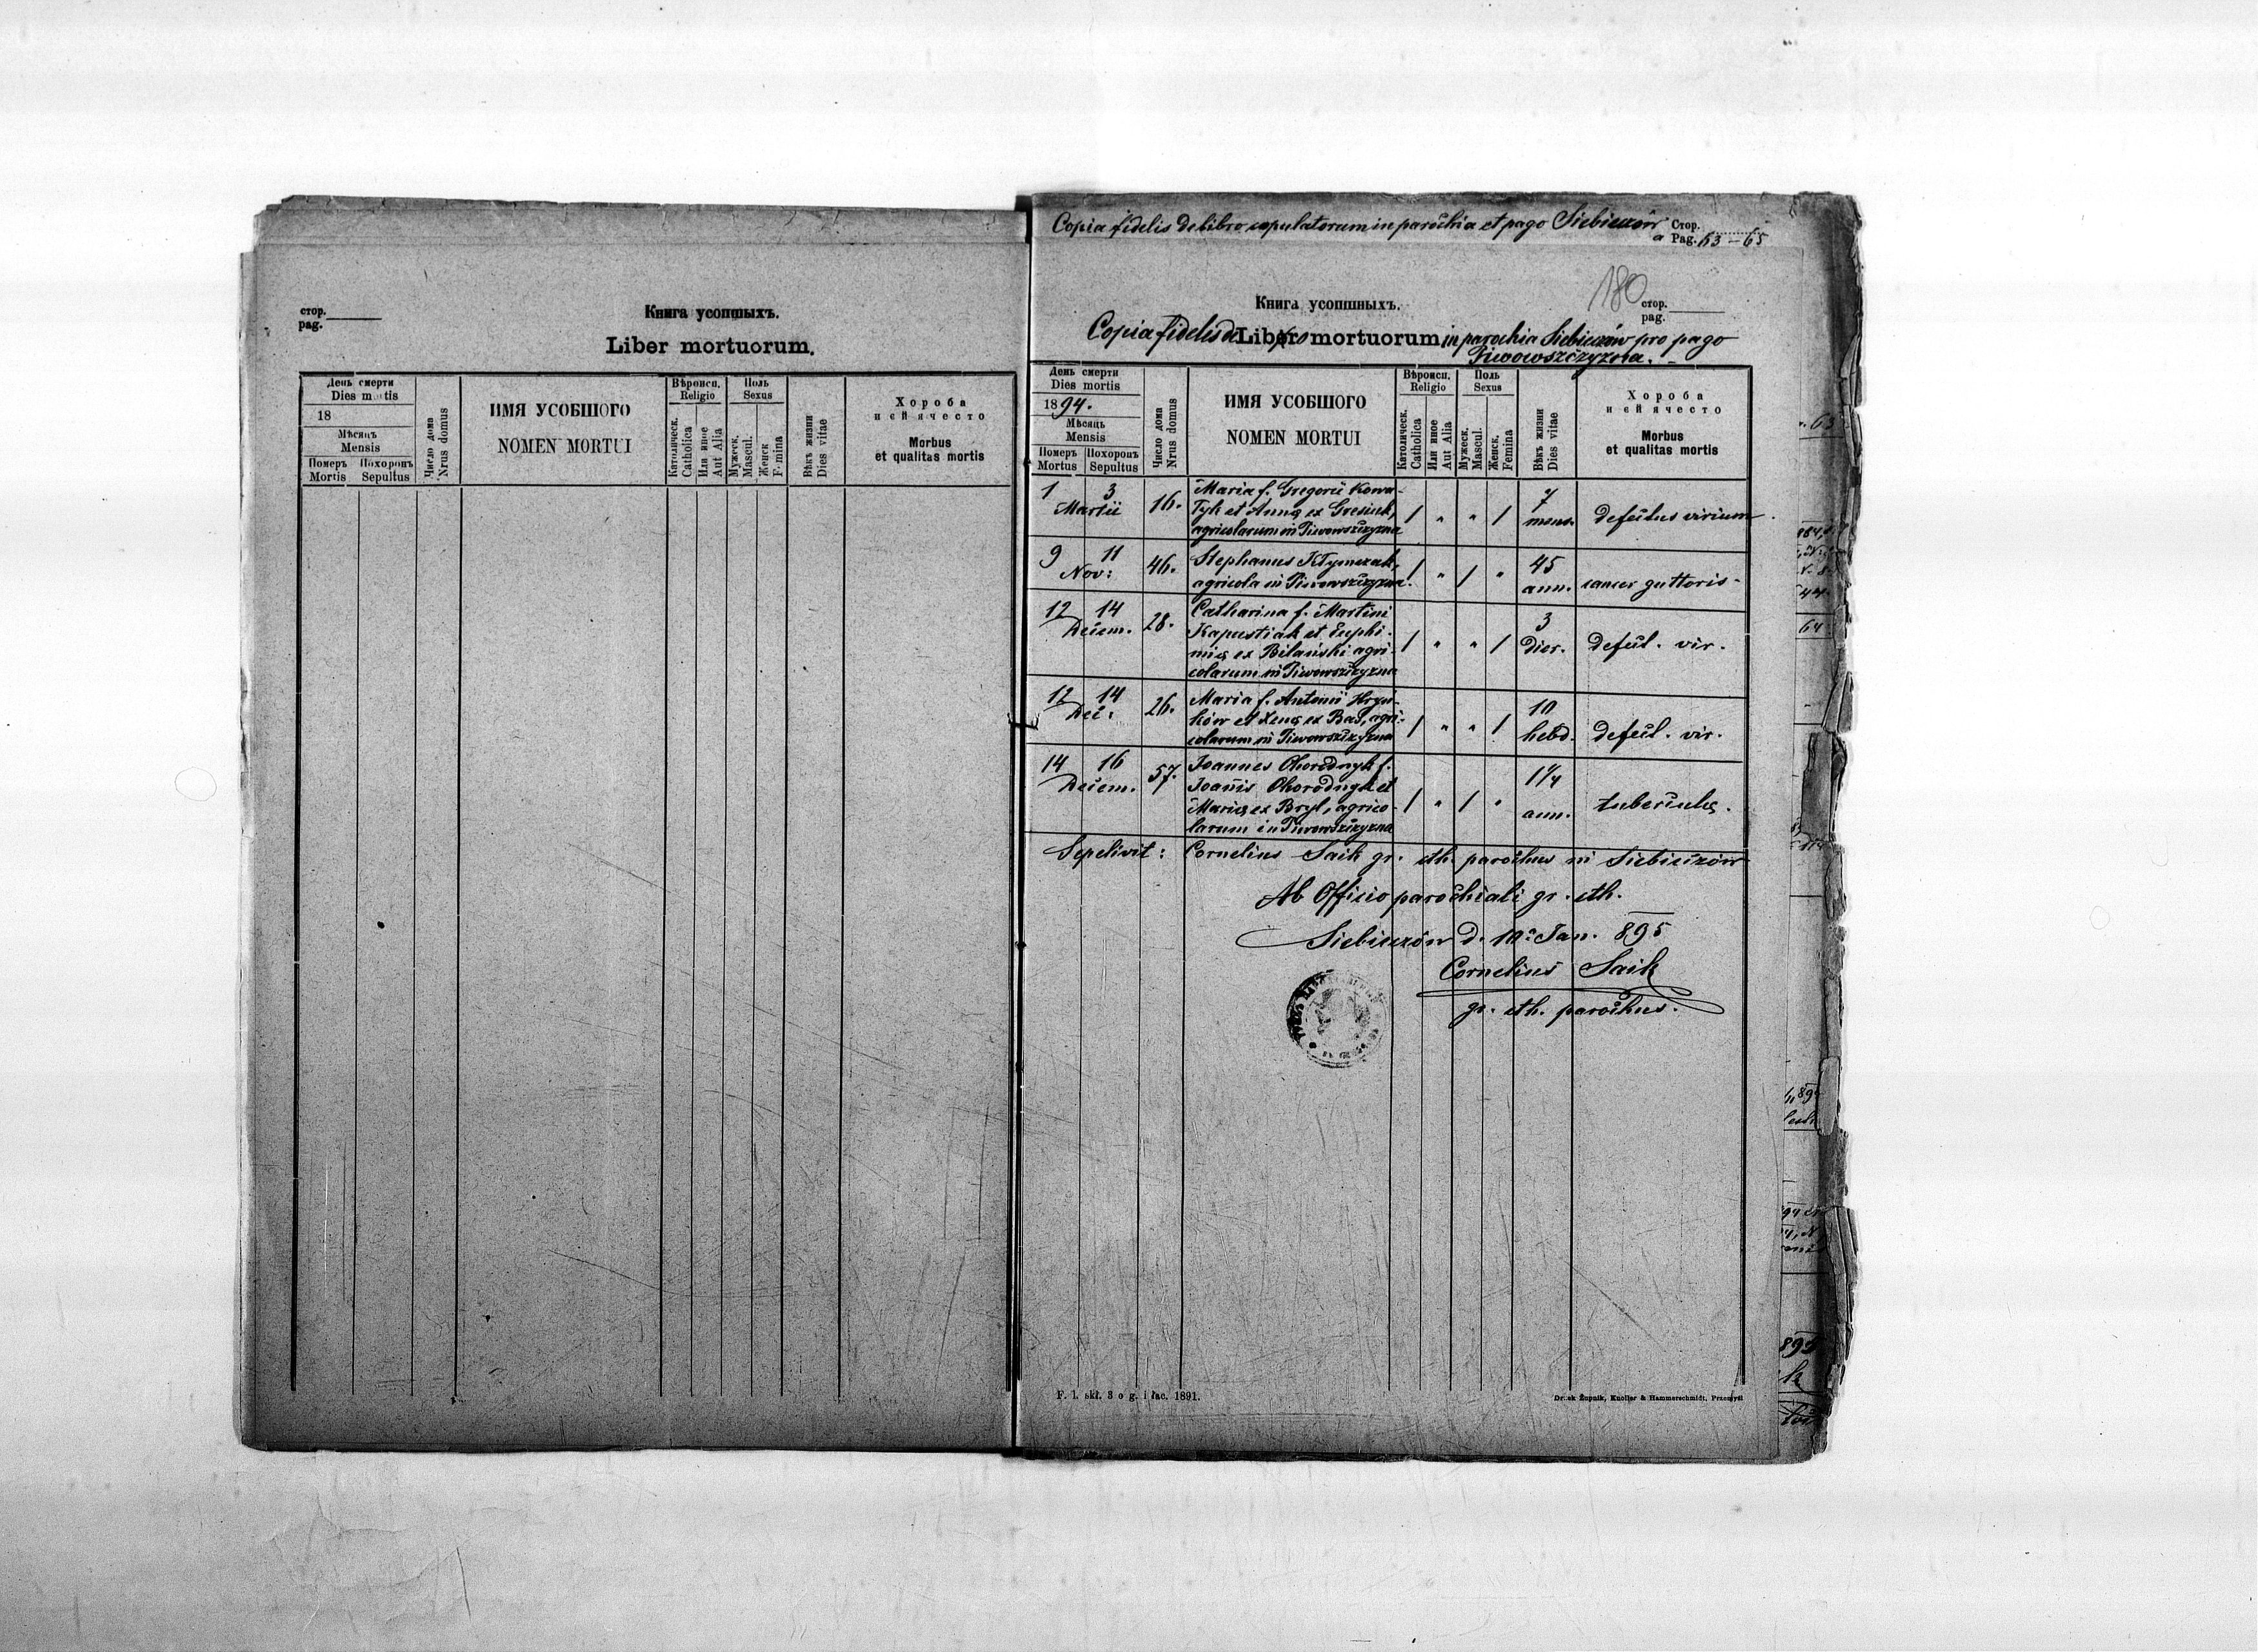 стор.
pag.
Книга усопшыхъ.
Liber mortuorum.
День смерти
Dies m tis
18
Мѣсяцъ
Mensis
Померъ Похоронъ
Mortis Sepultus
Число дома
Nrus domus
ИМЯ УСОБШОГО
NOMEN MORTUI
Вѣроисп.
Religio
Католическ.
Catholica
Или иное
Aut Alia
Поль
Sexus
Мужеск.
Mascul.
Женск
F mina
Вѣкъ жизни
Dies vitae
Хороба
и єй ячесто
Morbus
et qualitas mortis
Copia fidelis de libro copulatorum in parochia et pago Siebieczów Стор.
a Pag. 63-65
180
Книга усопшныхъ.
стор.
pag.
Copia fidelis de Libero mortuorum in parochia Siebieczów pro pago
Piwowszczyzna.
День смерти
Dies mortis
1894.
Мѣсяць
Mensis
Померъ Похоронъ
Mortus Sepultus
Число дома
Nrus domus
ИМЯ УСОБШОГО
NOMEN MORTUI
Вѣроисп.
Religio
Католическ.
Catholica
Или иное
Aut Alia
Поль
Sexus
Мужеск.
Mascul.
Женск,
Femina
Вѣкъ жизни
Dies vitae
Хороба
и єй ячесто
Morbus
et qualitas mortis
1 3 Martii 16. Maria f. Gregorii Kowa-
lyk et Annę ex Gresiuk,
agricolarum in Piwowszczyzna
/ " " / 7 mens. defectus virium
9 11 Nov: 46. Stephanus Kłymczuk,
agricola in Piwowszczyzna.
/ " / " 45 ann. cancer guttoris
12 14 Decem. 28. Catharina f. Martini
Kapustiak et Euphi-
mię ex Bilański agri-
colarum in Piwowszczyzna
/ " " / 3 dier. defect. vir.
12 14 Dec: 26. Maria f. Antonii Hryń-
ków et Xenę ex Bas, agri-
colarum in Piwowszczyzna
/ " " / 10 hebd. defect. vir.
14 16 Decem. 57. Joannes Ohorodnyk f.
Joanis Ohorodnyk et
Marię ex Bryl, agrico-
larum in Piwowszczyzna
/ " / " 1 1/4 ann. tuberculę.
Sepelivit: Cornelius Saik gr. cth. parochus in Siebieczów
Ab Officio parochiali gr. cth.
Siebieczów d. 10 Jan. 895
Cornelius Saik
gr. cth. parochus.
F. 1. skł. 3 o g. i łac. 1891.
Druk Żupnik, Knoller & Hammerschmidt, Przemyśl